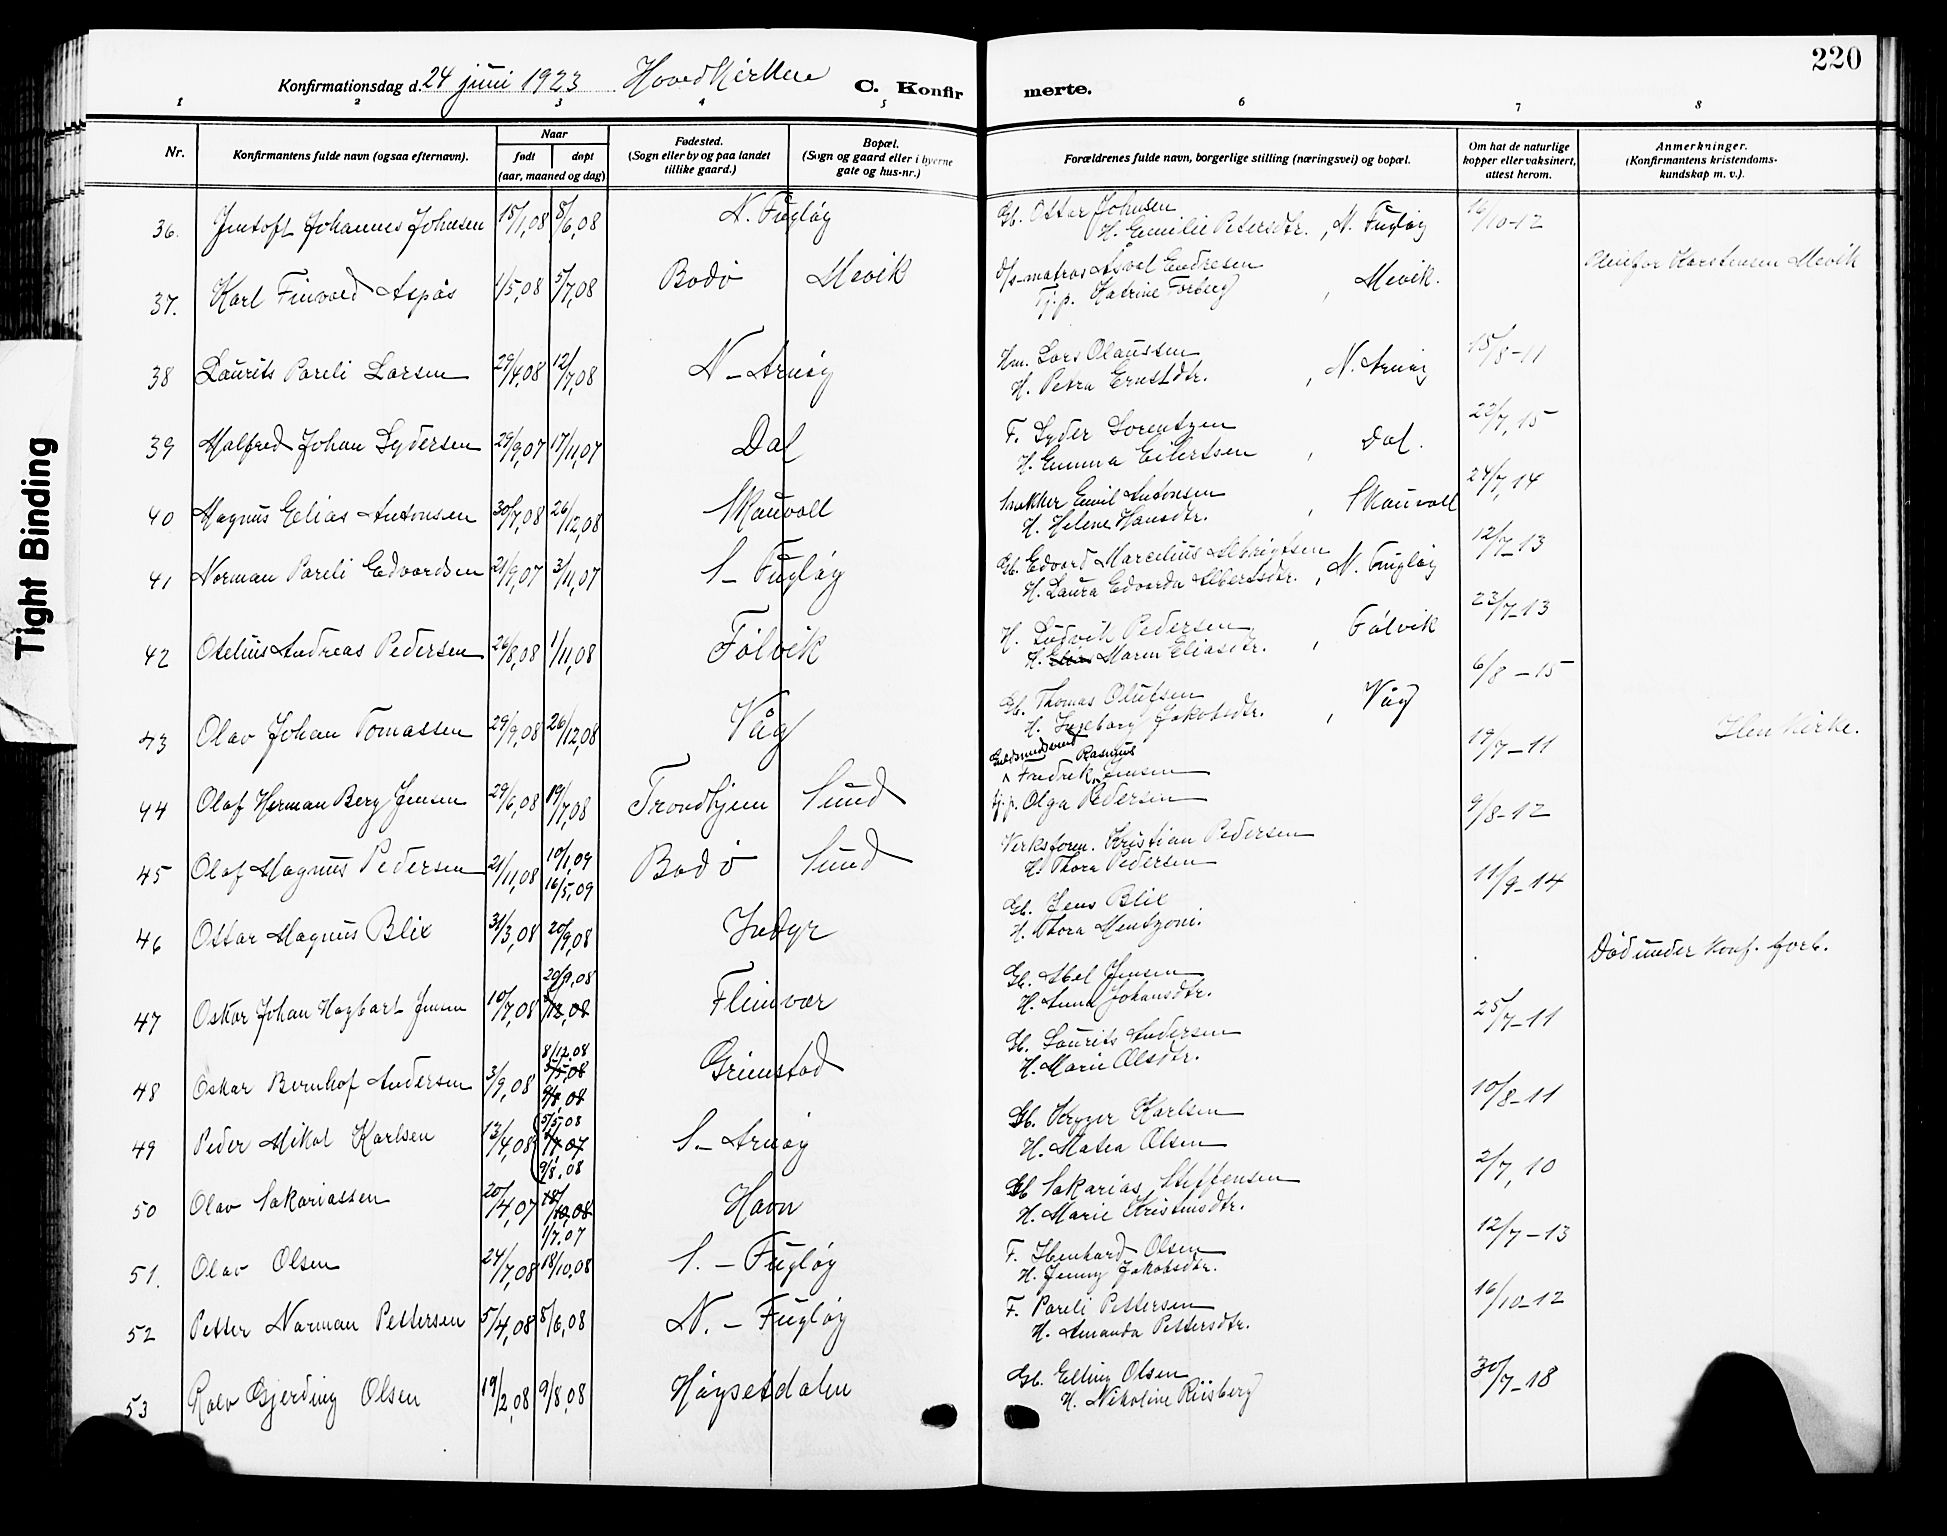 220
Konfirmationsdag d. 24 juni 1923 Hovedkirken C. Konfirmerte.
1 2 3 4 5 6 7 8
Nr.
Konfirmantens fulde navn (ogsaa efternavn).
Naar
født døpt
(aar, maaned og dag)
Fødested.
(Sogn eller by og paa landet
tillike gaard.)
Bopæl.
(Sogn og gaard eller i byerne
gate og hus-nr.)
Forældrenes fulde navn, borgerlige stilling (næringsvei) og bopæl.
Om hat de naturlige
kopper eller vaksinert,
attest herom.
Anmerkninger.
(Konfirmantens kristendoms-
kundskap m. v.).
36. Johannes Johnsen 15/1,08 8/6,08 N. Fugløy
Gb. Ottar Johnsen
H. Emilie Petersdtr., N. Fugløy 16/10-12
37. Karl Finvald Aspås 1/5,08 5/7,08 Bodø Mevik
matros Endresen
Tj.p. Katrine Forberg, Mevik.
Karstensen Mevik
38 Laurits Pareli Larsen 29/4,08 12/7,08 N-Arnøy
Hm. Lars Olaussen
H. Petra Ernstdtr., N. Arnøy 15/8-11
39 Malfred Johan Lydersen 29/9,07 17/11,07 Dal
F. Lyder Lorentzen
H. Emma Eilertsen, Dal. 23/7,15
40 Magnus Elias Antonsen 30/7,08 26/12,08 Skauvoll
Snekker Emil Antonsen
H. Helene Hansdtr., Skauvoll 24/7,14
41 Norman Pareli Edvardsen 21/9,07 3/11,07 S-Fugløy
Gb. Edvard Marcelius Albrigtsen
H. Laura Edvarda Albertsdtr., N. Fugløy 12/7-13
42 Otelius Andreas Pedersen 26/8,08 1/11,08 Følvik
H. Ludvik Pedersen
H. Maren Eliasdtr., Følvik 23/7-13
43 Olav Johan Tomassen 29/9,08 26/12,08 Våg
Gb. Thomas Olufsen
H. Ingeborg Jakobsdtr., Våg 6/8-15
Ilen Kirke.
44 Olaf Herman Berg Jensen 29/6,08 19/7,08 Trondhjem Sund
Rasmus
Fredrek Jensen
tj.p. Olga Pedersen 19/7-11
45 Olaf Magnus Pedersen 21/11,08 10/1,09
16/5,09 Bodø Sund
Verksform. Kristian Pedersen
H. Thora Pedersen 9/8-12
46 Ottar Magnus Blix 31/3,08 20/9,08 Indyr
Gb. Jens Blix
H. Thora Mentzoni. 11/9-14
Død under konf. forb.
47 Oskar Johan Hagbart Jensen 10/7,08 20/9,08 Fleinvær
Gb. Abel Jensen
H. Anna Johansdtr.
48 Oskar Bernhof Andersen 3/9,08 8/12,08 Grimstad
Gb. Laurits Andersen
H. Marie Olsdtr. 25/7-11
49 Peder Mikal Karlsen 13/4,08 5/5,08
9/8,08 S-Arnøy
Gb. Kryger Karlsen
H. Matea Olsen 10/8-11
50 Olav Sakariassen 20/4,07 18/10,08
1/7,07 Havn
Gb Sakarias Steffensen
H. Marie Kristensdtr. 2/7,10
51. Olav Olsen 24/7,08 18/10,08 S.-Fugløy
F. Olsen
H. Jenny Jakobsdtr. 12/7-13
52 Petter Norman Pettersen 5/4,08 8/6,08 N.-Fugløy
F. Pareli Pettersen
H. Amanda Pettersdtr. 16/10-12
53 Rolv Gjerding Olsen 19/2,08 9/8,08 Høgsetdalen
Gb. Elling Olsen
H. Nikoline Riisberg 30/7-18
Tight Binding